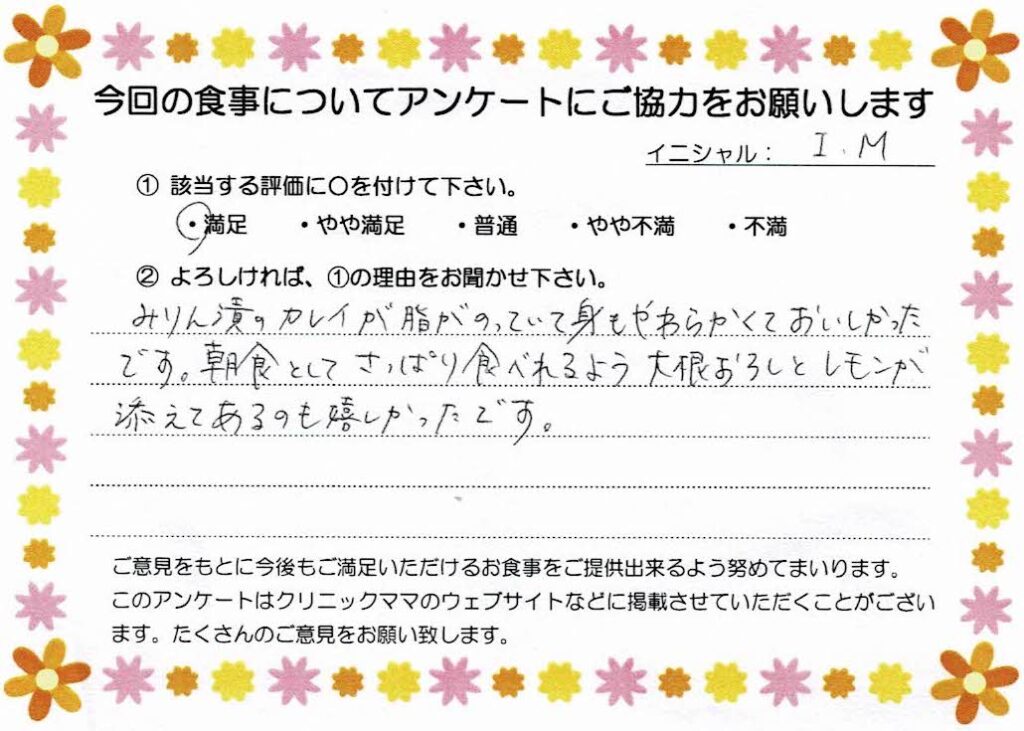 今回の食事についてアンケートにご協力をお願いします
イニシャル： I.M
① 該当する評価に〇を付けて下さい。
・満足 ・やや満足 ・普通 ・やや不満 ・不満
② よろしければ、①の理由をお聞かせ下さい。
みりん漬のカレイが脂がのっていて身もやわらかくておいしかった
です。朝食としてさっぱり食べれるよう大根おろしとレモンが
添えてあるのも嬉しかったです。
ご意見をもとに今後もご満足いただけるお食事をご提供出来るよう努めてまいります。
このアンケートはクリニックママのウェブサイトなどに掲載させていただくことがござい
ます。たくさんのご意見をお願い致します。